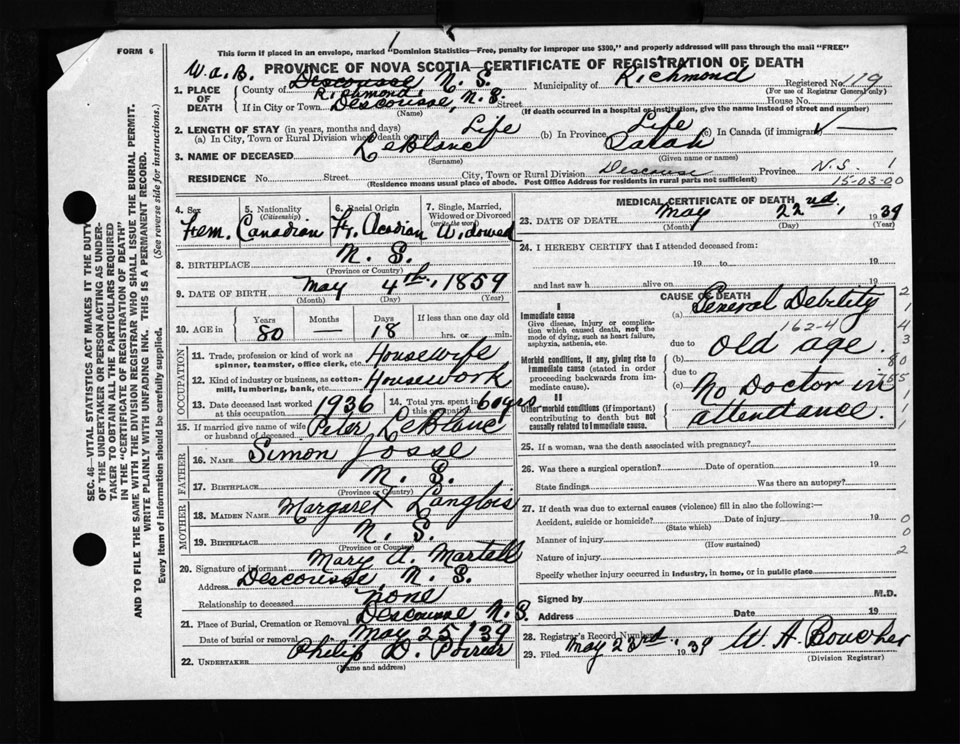 FORM 6
This form if placed in an envelope, marked "Dominion Statistics—Free, penalty for improper use $300," and properly addressed will pass through the mail "FREE"
PROVINCE OF NOVA SCOTIA—CERTIFICATE OF REGISTRATION OF DEATH
W.A.B.
1. PLACE OF DEATH
County of Descousse N. S. Municipality of Richmond Registered No. 119
Richmond
(For use of Registrar General only)
If in City or Town Descousse, N. S. Street House No.
(Name) (If death occurred in a hospital or institution, give the name instead of street and number)
2. LENGTH OF STAY (in years, months and days)
(a) In City, Town or Rural Division where death occurred Life (b) In Province Life (c) In Canada (if immigrant) ✓ —
3. NAME OF DECEASED LeBlanc Sarah
(Surname) (Given name or names)
RESIDENCE No. Street City, Town or Rural Division Descousse Province N.S 1
(Residence means usual place of abode. Post Office Address for residents in rural parts not sufficient) 15-03-00
4. Sex Fem.
5. Nationality (Citizenship) Canadian
6. Racial Origin Fr. Acadian
7. Single, Married, Widowed or Divorced (write the word) Widowed
8. BIRTHPLACE N. S.
(Province or Country)
9. DATE OF BIRTH May 4th, 1859
(Month) (Day) (Year)
10. AGE in Years 80 Months — Days 18 If less than one day old
hrs. or min.
OCCUPATION
11. Trade, profession or kind of work as spinner, teamster, office clerk, etc. Housewife
12. Kind of industry or business, as cotton-mill, lumbering, bank, etc. Housework
13. Date deceased last worked at this occupation 1936 14. Total yrs. spent in this occupation 60 yrs
15. If married give name of wife or husband of deceased Peter LeBlanc
FATHER
16. NAME Simon Josse
17. BIRTHPLACE N. S.
(Province or Country)
MOTHER
18. MAIDEN NAME Margaret Langlois
19. BIRTHPLACE N. S.
(Province or Country)
20. Signature of informant Mary A. Martell
Address Descousse, N. S.
Relationship to deceased none
21. Place of Burial, Cremation or Removal Descousse N.S.
Date of burial or removal May 25/39
22. UNDERTAKER Philip D. Poirier
(Name and address)
MEDICAL CERTIFICATE OF DEATH
23. DATE OF DEATH May 22nd, 1939
(Month) (Day) (Year)
24. I HEREBY CERTIFY that I attended deceased from:
19 to 19
and last saw h alive on 19
CAUSE OF DEATH
I
Immediate cause
Give disease, injury or complication which caused death, not the mode of dying, such as heart failure, asphyxia, asthenia, etc.
(a) General Debility
162-4
due to
Morbid conditions, if any, giving rise to immediate cause (stated in order proceeding backwards from immediate cause).
(b) Old age.
due to
(c) No Doctor in
II
Other morbid conditions (if important) contributing to death but not causally related to immediate cause.
attendance.
25. If a woman, was the death associated with pregnancy?
26. Was there a surgical operation? Date of operation 19
State findings Was there an autopsy?
27. If death was due to external causes (violence) fill in also the following:—
Accident, suicide or homicide? Date of injury 19
(State which)
Manner of injury
(How sustained)
Nature of injury
Specify whether injury occurred in industry, in home, or in public place
Signed by M.D.
Address Date 19
28. Registrar's Record Number
29. Filed May 23rd, 1939 W. A. Boucher
(Division Registrar)
SEC. 46—VITAL STATISTICS ACT MAKES IT THE DUTY
OF THE UNDERTAKER OR PERSON ACTING AS UNDER-
TAKER TO OBTAIN ALL THE PARTICULARS REQUIRED
IN THE "CERTIFICATE OF REGISTRATION OF DEATH"
AND TO FILE THE SAME WITH THE DIVISION REGISTRAR WHO SHALL ISSUE THE BURIAL PERMIT.
WRITE PLAINLY WITH UNFADING INK. THIS IS A PERMANENT RECORD.
Every item of information should be carefully supplied. (See reverse side for instructions.)